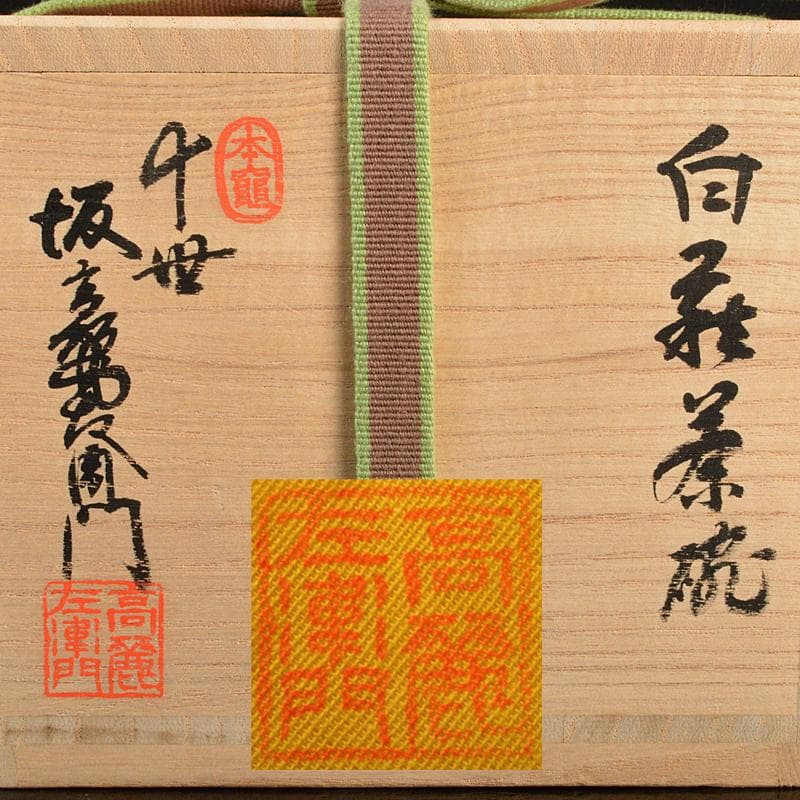 白萩茶碗
十世
坂高麗左衛門
高麗
左衛門
高麗
左衛門